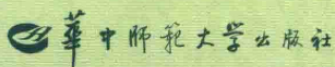 華中师範大学出版社